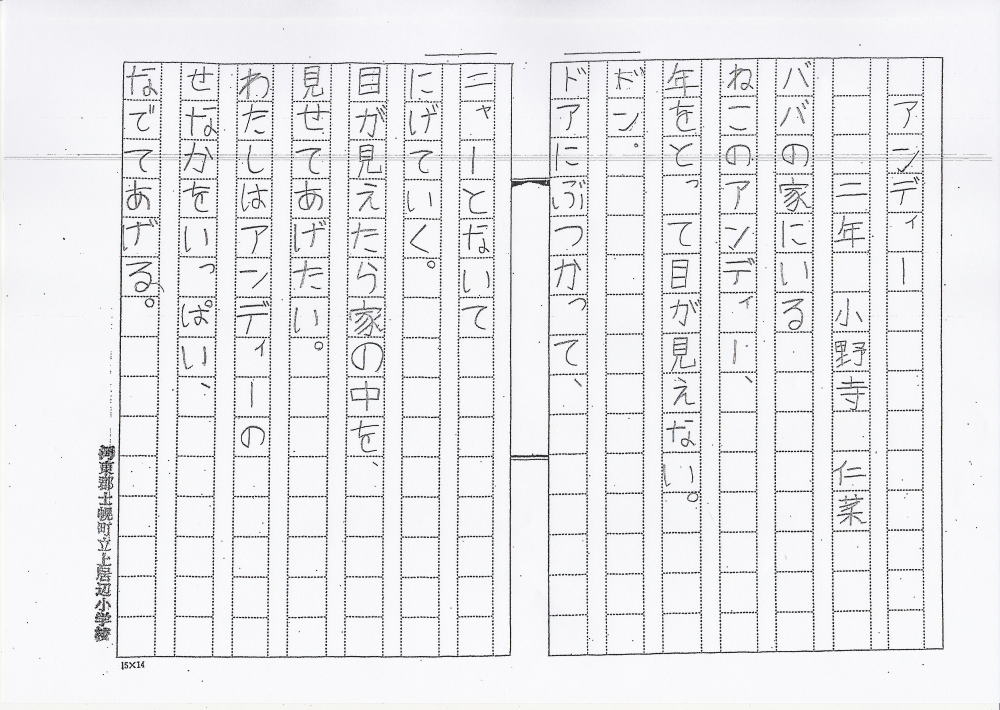 アンディー
二年 小野寺 仁菜
ババの家にいる
ねこのアンディー、
年をとって目が見えない。
ドン。
ドアにぶつかって、
ニャーとないて
にげていく。
目が見えたら家の中を、
見せてあげたい。
わたしはアンディーの
せなかをいっぱい、
なでてあげる。
河東郡士幌町立上居辺小学校
15×14